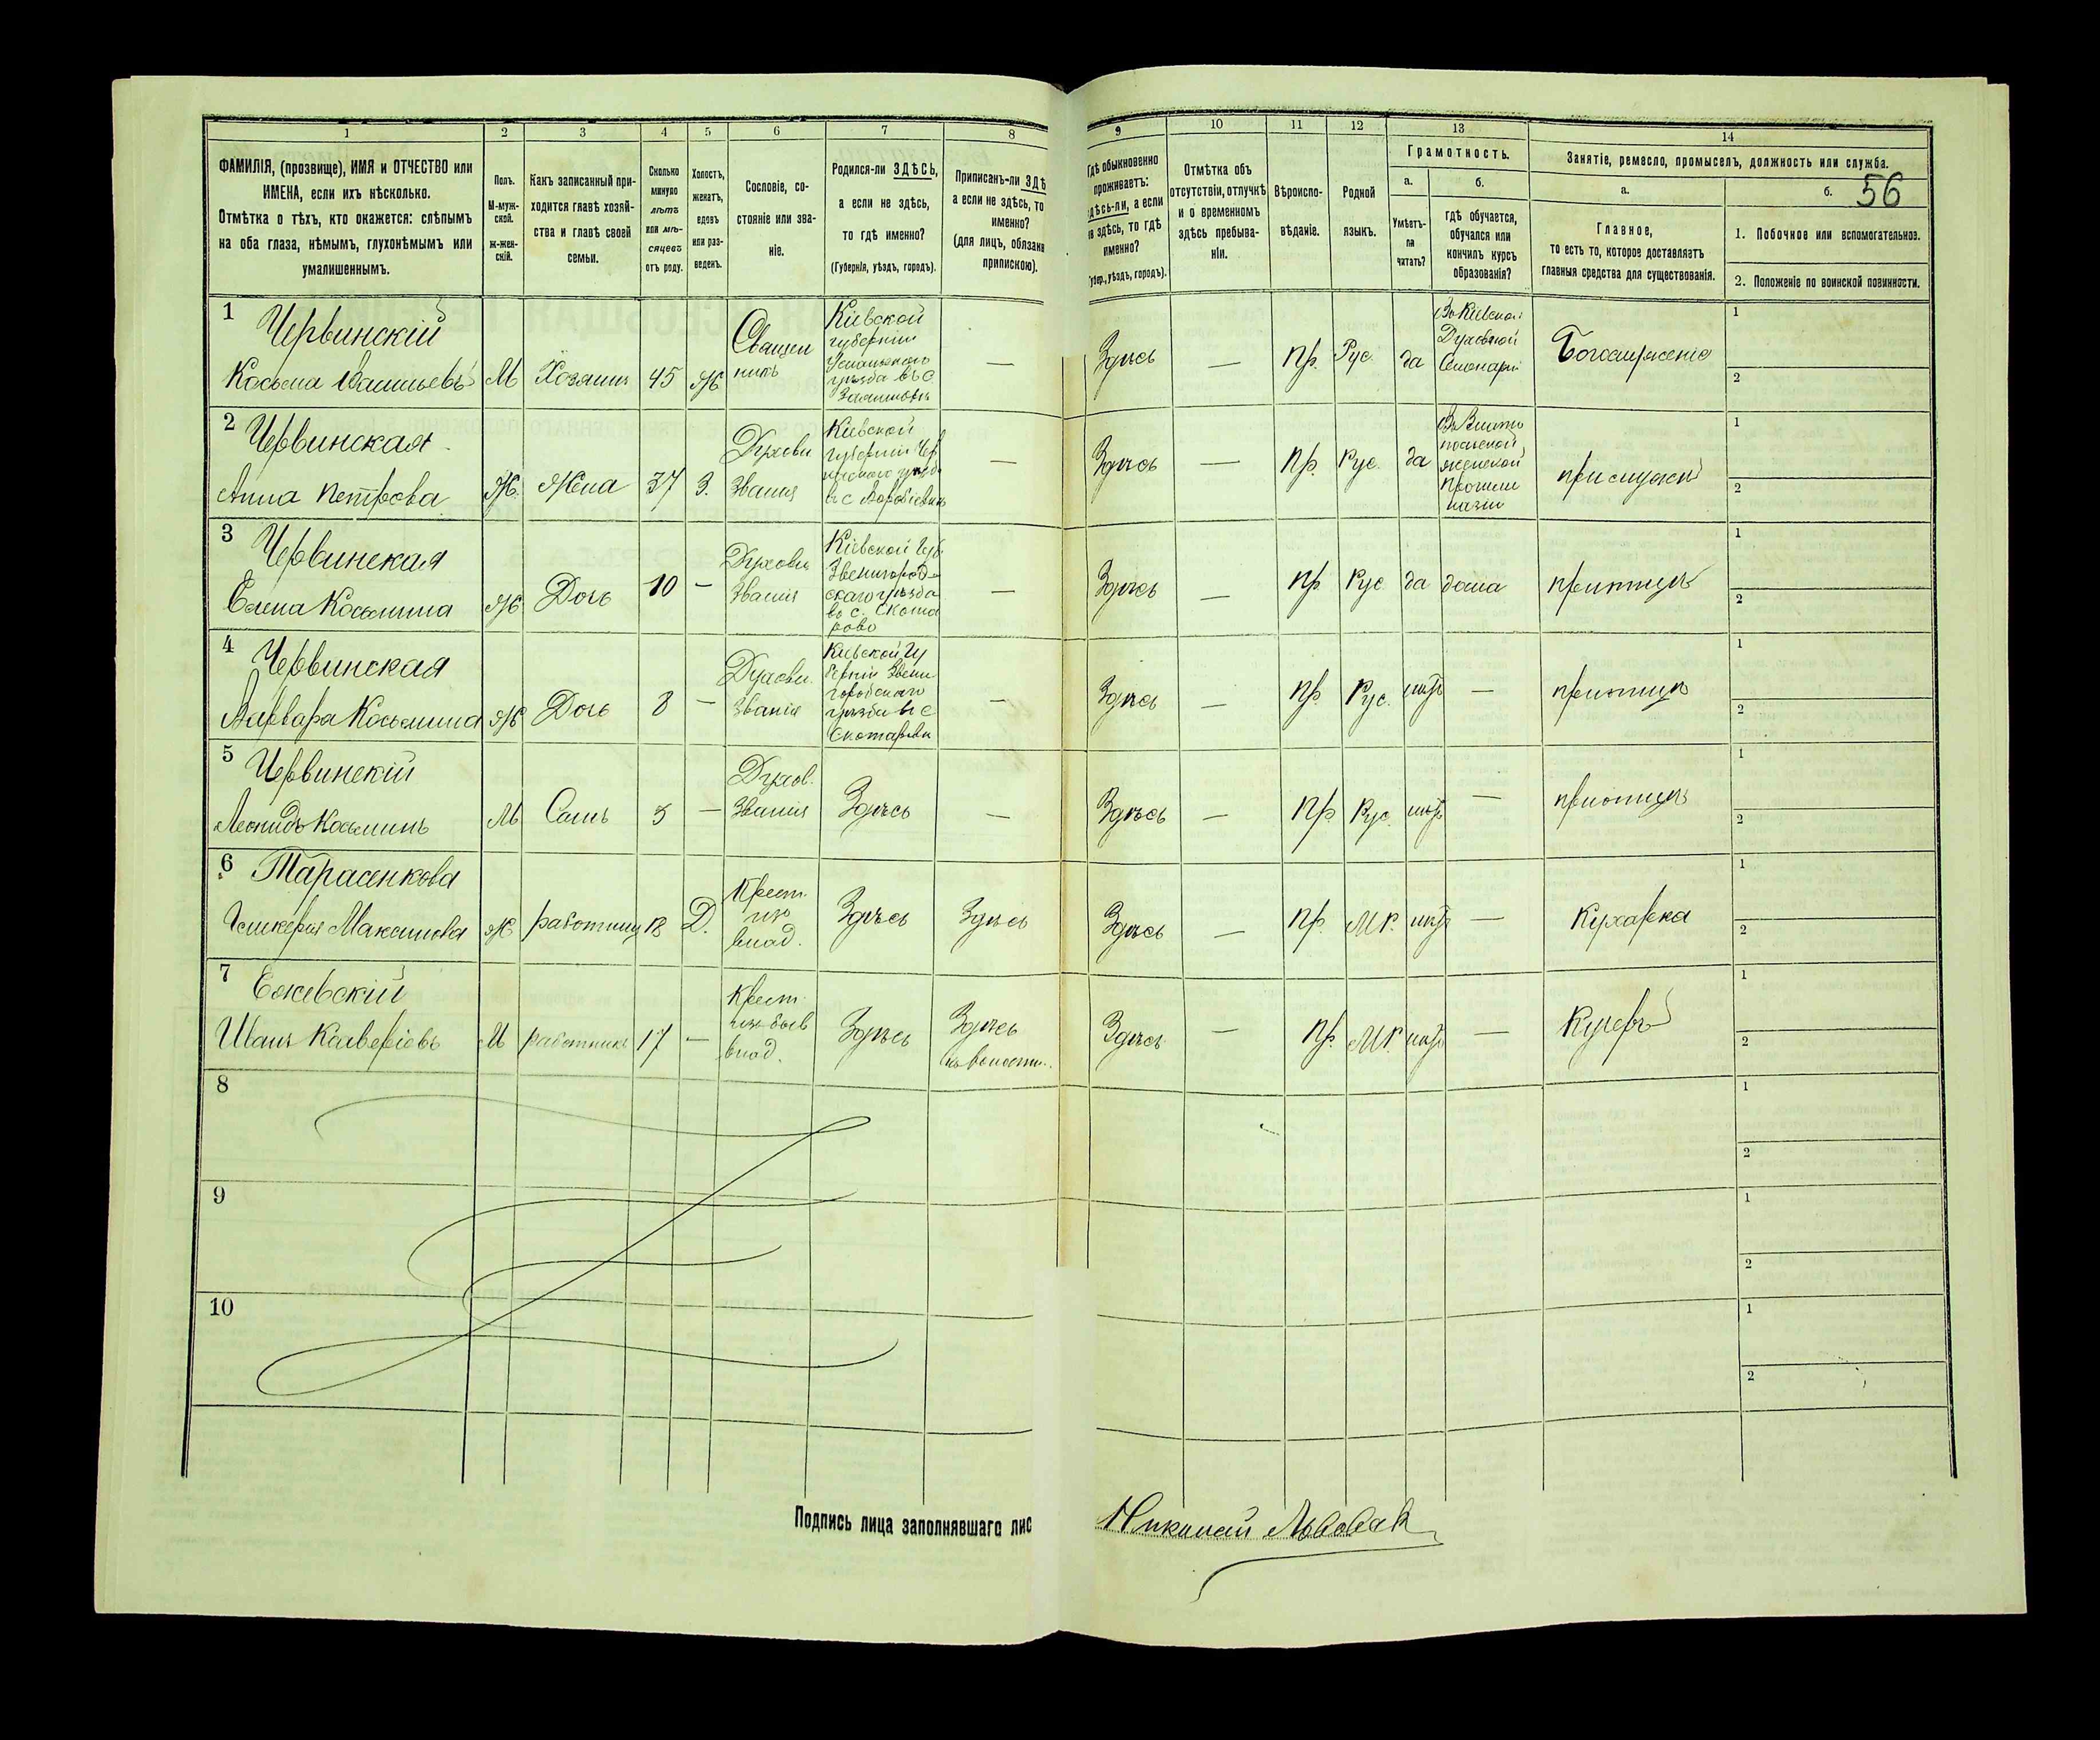 1 2 3 4 5 6 7 8 9 10 11 12 13 14
ФАМИЛІЯ, (прозвище), ИМЯ и ОТЧЕСТВО или
ИМЕНА, если ихъ нѣсколько.
Отмѣтка о тѣхъ, кто окажется: слѣпымъ
на оба глаза, нѣмымъ, глухонѣмымъ или
умалишеннымъ.
Полъ.
М-муж-
ской.
ж-жен-
скій.
Какъ записанный при-
ходится главѣ хозяй-
ства и главѣ своей
семьи.
Сколько
минуло
лѣтъ
или мѣ-
сяцевъ
отъ роду.
Холостъ,
женатъ,
вдовъ
или раз-
веденъ.
Сословіе, со-
стояніе или зва-
ніе.
Родился-ли ЗДѢСЬ,
а если не здѣсь,
то гдѣ именно?
(Губернія, уѣздъ, городъ).
Приписанъ-ли ЗДѢ
а если не здѣсь, то
именно?
(для лицъ, обязанн
припискою).
Гдѣ обыкновенно
проживаетъ:
здѣсь-ли, а если
не здѣсь, то гдѣ
именно?
(Губер., уѣздъ, городъ).
Отмѣтка объ
отсутствіи, отлучкѣ
и о временномъ
здѣсь пребыва-
ніи.
Вѣроиспо-
вѣданіе.
Родной
языкъ.
Грамотность.
а.
Умѣетъ-
ли
читать?
б.
гдѣ обучается,
обучался или
кончилъ курсъ
образованія?
Занятіе, ремесло, промыселъ, должность или служба.
а.
Главное,
то есть то, которое доставляетъ
главныя средства для существованія.
б. 56
1. Побочное или вспомогательное.
2. Положеніе по воинской повинности.
1 Червинскій
Косьма Васильевъ М Хозяинъ 45 Ж
Священ
никъ
Кіевской
губерніи
Уманьского
уѣзда въ с.
—
Здѣсь — Пр. Рус. да
Въ Кіевской
Духовной
Семинаріи
Богослуженіе
1
2
2 Червинская
Анна Петрова Ж. Жена 37 З.
Духовн
званія
Кіевской
губерніи Чер
касского уѣзда
въ с
—
Здѣсь — Пр. Рус. да
женской
Прогим
назіи
при мужѣ
1
2
3 Червинская
Елена Косьмина Ж. Дочь 10 —
Духовн
званія
Кіевской Губ
Звенигород-
скаго уѣзда
въ с. Скота
рово
—
Здѣсь — Пр Рус да дома при отцѣ
1
2
4 Червинская
Варвара Косьмина Ж Дочь 8 —
Духовн.
званія
Кіевской Гу
берніи Звени
городского
уѣзда въ с
Скотарёвы
—
Здѣсь — Пр. Рус. нѣтъ — при отцѣ
1
2
5 Червинскій
Леонидъ Косьминъ М Сынъ 5 —
Духов.
званія
Здѣсь — Здѣсь — Пр. Рус. нѣтъ — при отцѣ
1
2
6 Тарасенкова
Гликерія Максимова Ж работница 18 Д.
Крест.
изъ
влад.
Здѣсь Здѣсь Здѣсь — Пр. М.Р. нѣтъ — Кухарка
1
2
7 Ежевскій
Иванъ М работникъ 17 —
Крест.
изъ быв
влад.
Здѣсь
Здѣсь
къ волости.
Здѣсь — Пр. М.Р. нѣтъ — Кучеръ
1
2
8
1
2
9
1
2
10
1
2
Подпись лица заполнявшаго лис
Николай